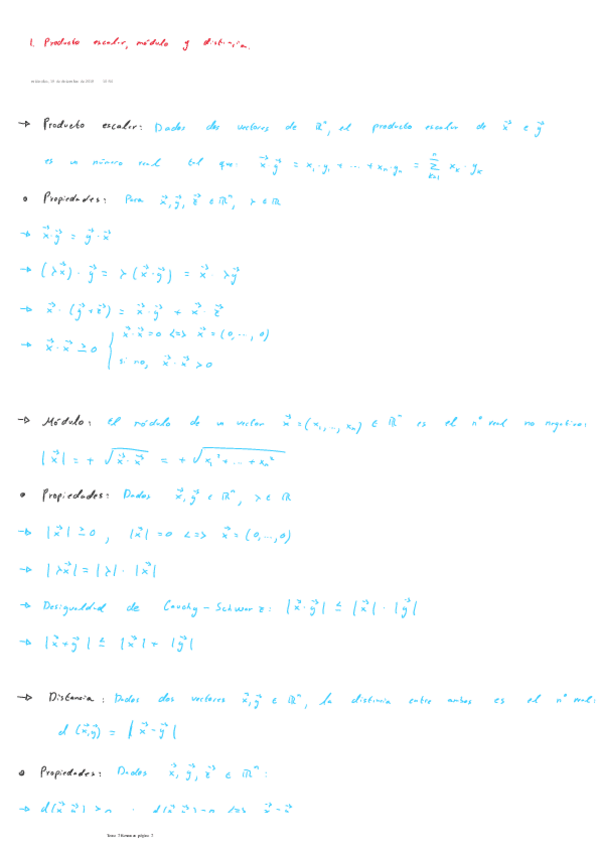 1. Producto escalar, módulo y distancia.
→ Producto escalar: Dados dos vectores de ℝⁿ, el producto escalar de x⃗ e y⃗
es un número real tal que: x⃗·y⃗ = x₁·y₁ + ... + xₙ·yₙ = Σₖ₌₁ⁿ xₖ·yₖ
• Propiedades: Para x⃗, y⃗, z⃗ ∈ ℝⁿ, λ ∈ ℝ
→ x⃗·y⃗ = y⃗·x⃗
→ (λx⃗)·y⃗ = λ(x⃗·y⃗) = x⃗·λy⃗
→ x⃗·(y⃗+z⃗) = x⃗·y⃗ + x⃗·z⃗
→ x⃗·x⃗ ≥ 0 { x⃗·x⃗ = 0 <=> x⃗ = (0,...,0)
si no, x⃗·x⃗ > 0
→ Módulo: el módulo de un vector x⃗ = (x₁,...,xₙ) ∈ ℝⁿ es el nº real no negativo:
|x⃗| = +√(x⃗·x⃗) = +√(x₁² + ... + xₙ²)
• Propiedades: Dados x⃗, y⃗ ∈ ℝⁿ, λ ∈ ℝ
→ |x⃗| ≥ 0, |x⃗| = 0 <=> x⃗ = (0,...,0)
→ |λx⃗| = |λ|·|x⃗|
→ Desigualdad de Cauchy-Schwarz: |x⃗·y⃗| ≤ |x⃗|·|y⃗|
→ |x⃗+y⃗| ≤ |x⃗| + |y⃗|
→ Distancia: Dados dos vectores x⃗, y⃗ ∈ ℝⁿ, la distancia entre ambos es el nº real:
d(x⃗,y⃗) = |x⃗-y⃗|
• Propiedades: Dados x⃗, y⃗, z⃗ ∈ ℝⁿ: